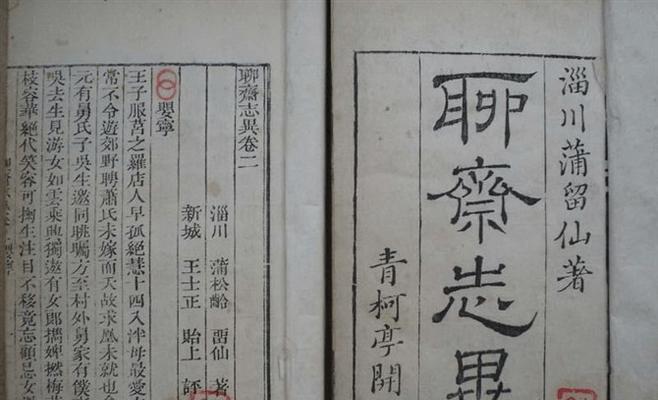 淄川蒲留仙著
聊齋志異
青柯亭開
聊齋志異卷二
淄川 蒲松齡 畱仙 著
新城 王士正 貽上 評
嬰寧
王子服莒之羅店人早孤絕慧十四入泮母最愛
常不令遊郊野聘蕭氏未嫁而夭故求凰未就也
元有舅氏子吳生邀同眺矚方至村外舅家有僕
吳去生見游女如雲乘興獨遨有女郎攜婢撚梅
枝容華絕代笑容可掬生注目不移竟忘顧忌女